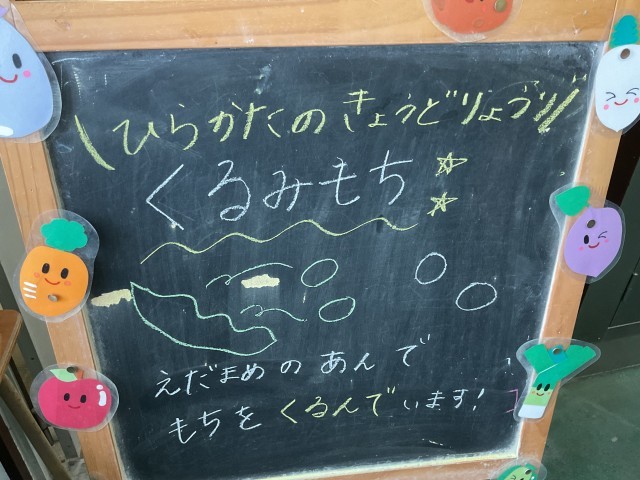 \ひらかたのきょうどりょうり/
くるみもち
えだまめのあんで
もちをくるんでいます!